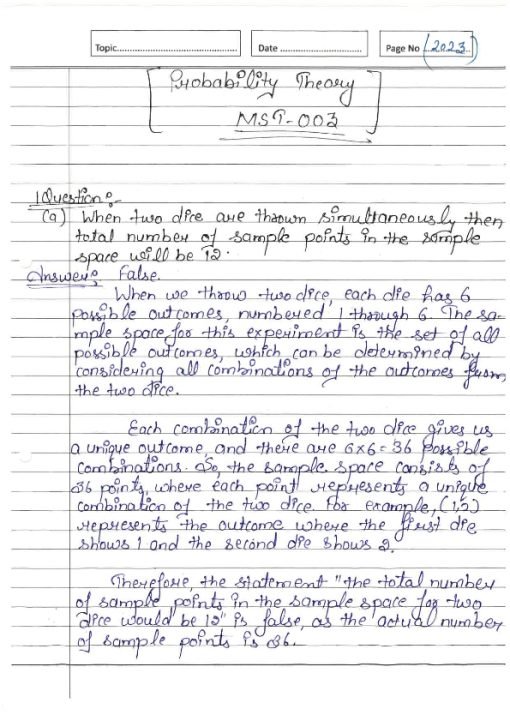 Topic..........................................
Date ..............................
Page No 2023
Probability Theory
MST-003
1 Question :-
(a) When two dice are thrown simultaneously then
total number of sample points in the sample
space will be 12.
Answer :- False.
When we throw two dice, each die has 6
possible outcomes, numbered 1 through 6. The sa-
mple space for this experiment is the set of all
possible outcomes, which can be determined by
considering all combinations of the outcomes from
the two dice.
Each combination of the two dice gives us
a unique outcome, and there are 6x6 = 36 possible
combinations. So, the sample space consists of
36 points, where each point represents a unique
combination of the two dice. For example, (1,2)
represents the outcome where the first die
shows 1 and the second die shows 2.
Therefore, the statement "the total number
of sample points in the sample space for two
dice would be 12" is false, as the actual number
of sample points is 36.